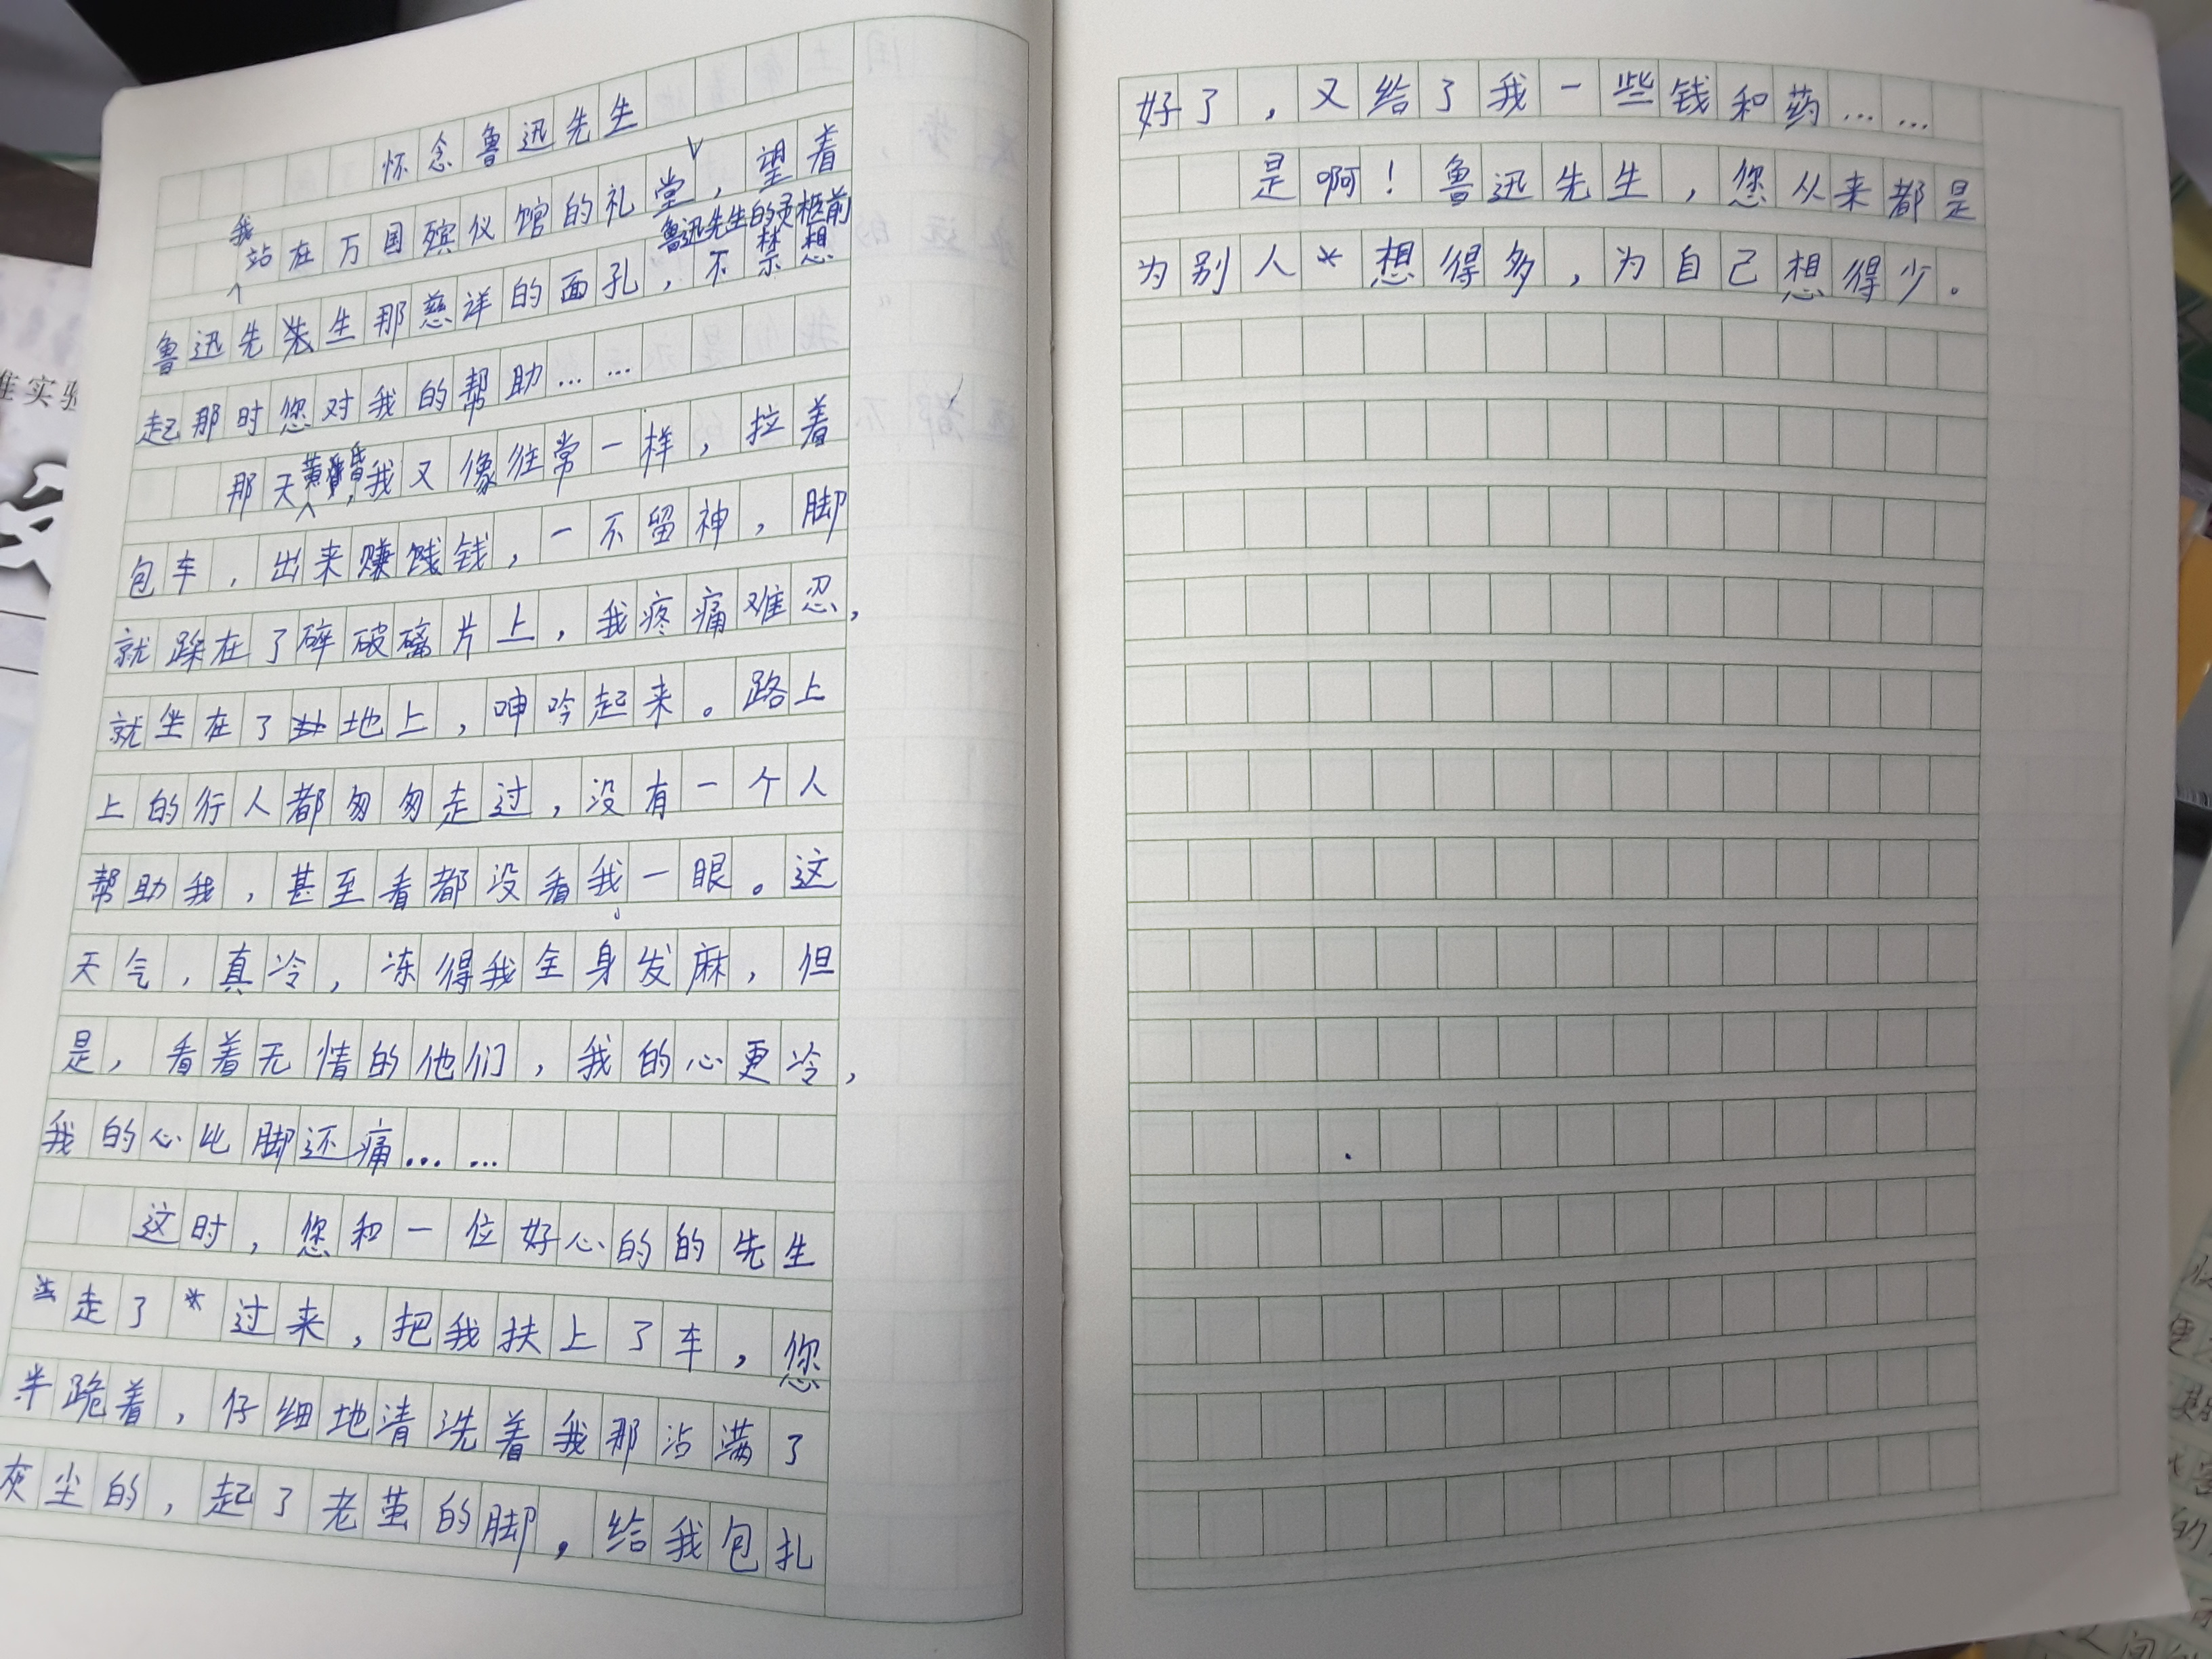 怀念鲁迅先生
我站在万国殡仪馆的礼堂鲁迅先生的灵柩前，望着
鲁迅先生那慈详的面孔，不禁想
起那时您对我的帮助……
那天黄昏，我又像往常一样，拉着
包车，出来赚钱，一不留神，脚
就踩在了碎玻璃片上，我疼痛难忍，
就坐在了地上，呻吟起来。路上
上的行人都匆匆走过，没有一个人
帮助我，甚至看都没看我一眼。这
天气，真冷，冻得我全身发麻，但
是，看着无情的他们，我的心更冷，
我的心比脚还痛……
这时，您和一位好心的的先生
走了过来，把我扶上了车，您
半跪着，仔细地清洗着我那沾满了
灰尘的，起了老茧的脚，给我包扎
好了，又给了我一些钱和药……
是啊！鲁迅先生，您从来都是
为别人想得多，为自己想得少。
准实验